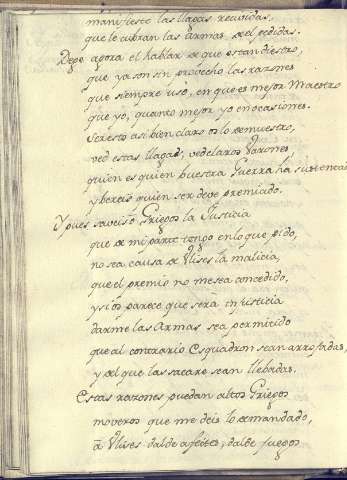 manifieste las llagas recividas,
que le cubran las Armas, del pedidas.
Dege agora el hablar de que es tan diestro,
que ya son sin provecho las razones
que siempre usó, en que es mejor Maestro
que yo, quanto mejor yo en ocasiones.
Seros ha bien claro os lo demuestro,
ved estas llagas, vedelaros Varones
quien es quien buestra Guerra ha sustentado
y bereis quien ser deve premiado.
Y pues saveis o Griegos la Justicia
que de mi parte tengo en lo que pido,
no sea causa de Ulises la malicia,
que el premio no me sea concedido,
y si os parece que será injusticia
darme las Armas sea permitido
que al contrario Esquadron sean arrojadas,
y del que las sacare sean llebadas.
Estas razones puedan altos Griegos
moveros que me deis lo demandado,
à Ulises dalde afeites, dalde fuegos